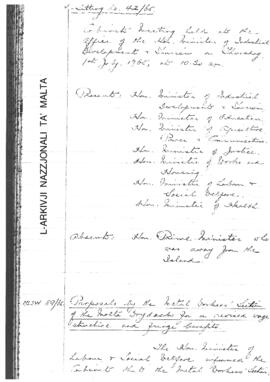 Sitting No. 42/65
Cabinet Meeting held at the
Office of the Hon. Minister of Industrial
Development & Tourism on Thursday
1st July, 1965, at 10.30 am.
Present: Hon. Minister of Industrial
Development & Tourism
Hon. Minister of Education.
Hon. Minister of Agriculture
Power & Communications.
Hon. Minister of Justice.
Hon. Minister of Works and
Housing.
Hon. Minister of Labour &
Social Welfare.
Hon. Minister of Health.
Absent: Hon. Prime Minister who
was away from the
Island.
Proposals by the Metal Workers' Section
of the Malta Drydocks for a revised wage
structure and fringe benefits.
The Hon. Minister of
Labour & Social Welfare informed the
Cabinet that the Metal Workers' Section
L-ARKIVJI NAZZJONALI TA' MALTA